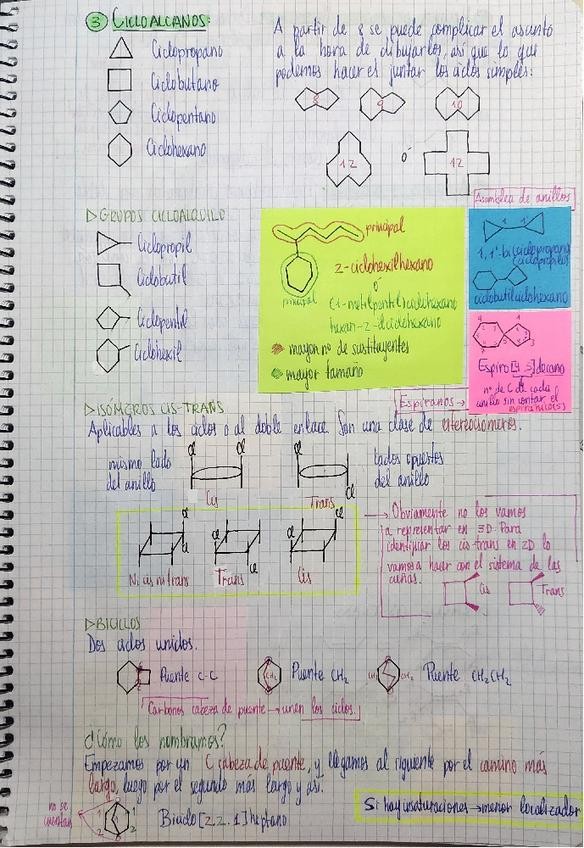 3 CICLOALCANOS:
Ciclopropano
Ciclobutano
Ciclopentano
Ciclohexano
A partir de 8 se puede complicar el asunto
a la hora de dibujarlos, así que lo que
podemos hacer es juntar los ciclos simples:
8 9 10
12 ó 12
Asamblea de anillos
▷GRUPOS CICLOALQUILO
Ciclopropil
Ciclobutil
Ciclopentil
Ciclohexil
principal
principal
2-ciclohexilhexano
ó
(1-metilpentil)ciclohexano
hexan-2-ilciclohexano
mayor nº de sustituyentes
mayor tamaño
1 1'
1,1'-bi(ciclopropano)
(ciclopropilo)
ciclobutilciclohexano
Espiro[4.5]decano
nº de C de cada
anillo sin contar el
Espiranos →
▷ISÓMEROS CIS-TRANS
Aplicables a los ciclos o al doble enlace. Son una clase de estereoisómeros.
mismo lado
del anillo
Cl Cl
Cis
Cl
Cl
Trans
lados opuestos
del anillo
Cl
Cl
Ni cis ni trans
Cl
Cl
Trans
Cl
Cl
Cis
→ Obviamente no los vamos
a representar en 3D. Para
identificar los cis-trans en 2D lo
vamos a hacer con el sistema de las
cuñas.
Cis
Trans
▷BICICLOS
Dos ciclos unidos.
Puente C-C
CH₂
Puente CH₂
CH₂ CH₂
Puente CH₂CH₂
Carbonos cabeza de puente → unen los ciclos.
¿Cómo los nombramos?
Empezamos por un C cabeza de puente, y llegamos al siguiente por el camino más
largo, luego por el segundo más largo y así.
no se
cuentan
Biciclo[2.2.1]heptano
Si hay insaturaciones → menor localizador